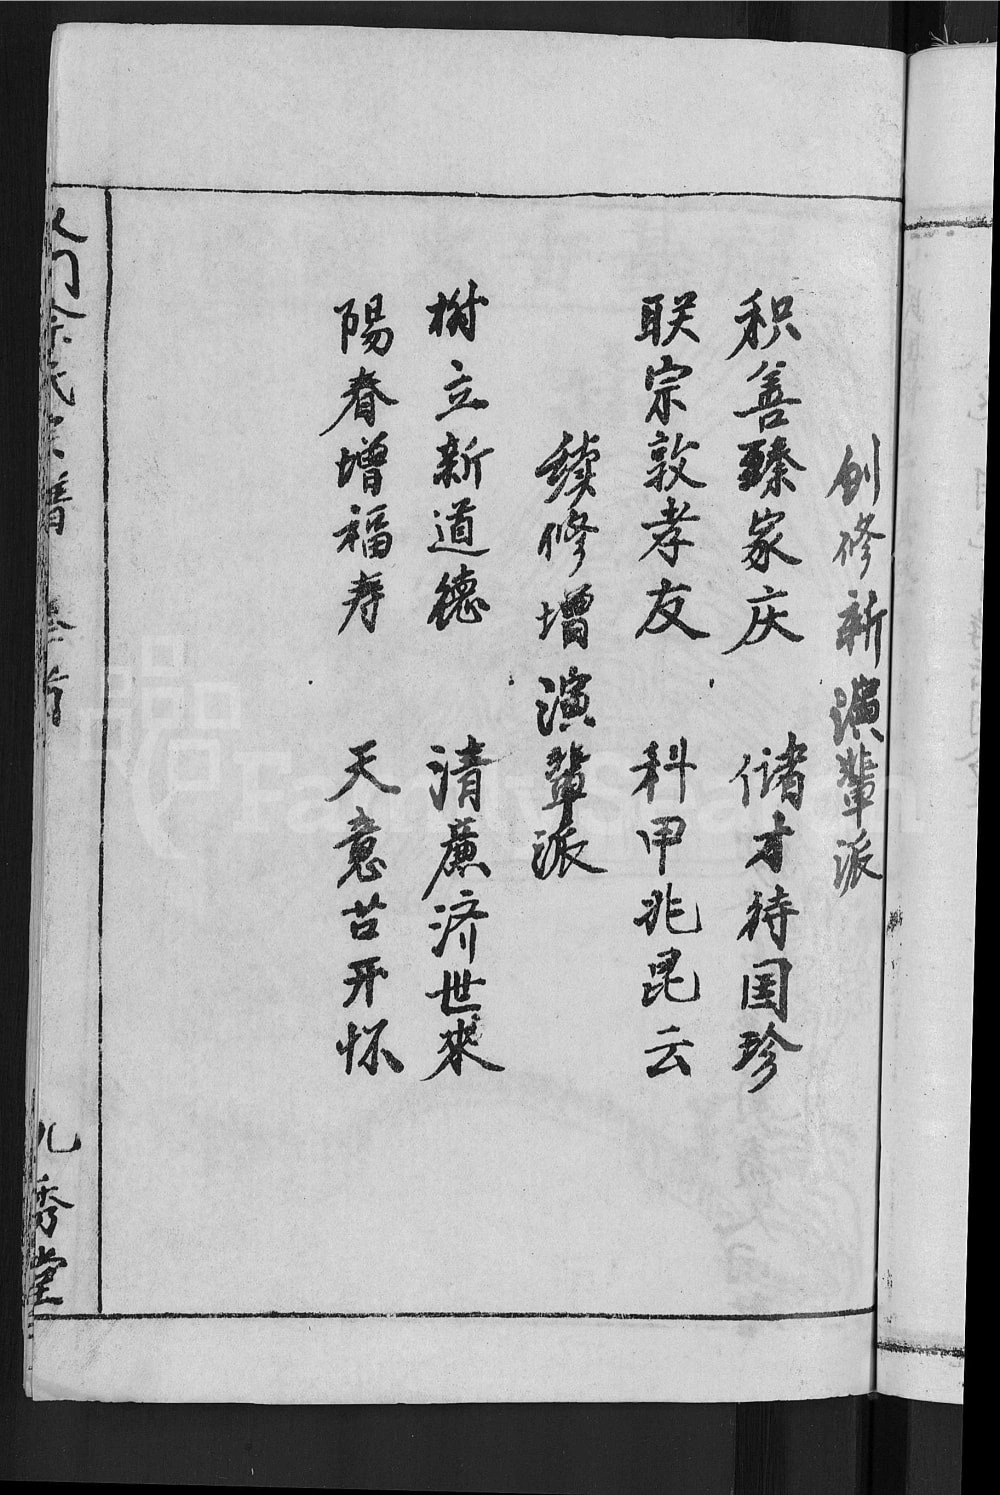 创修新演輩派
积善臻家庆 储才待国珍
联宗敦孝友 科甲兆昆云
续修增演輩派
樹立新道德 清廉济世來
陽春增福寿 天意苦开怀
門余氏宗譜 卷首 九秀堂
FamilySearch